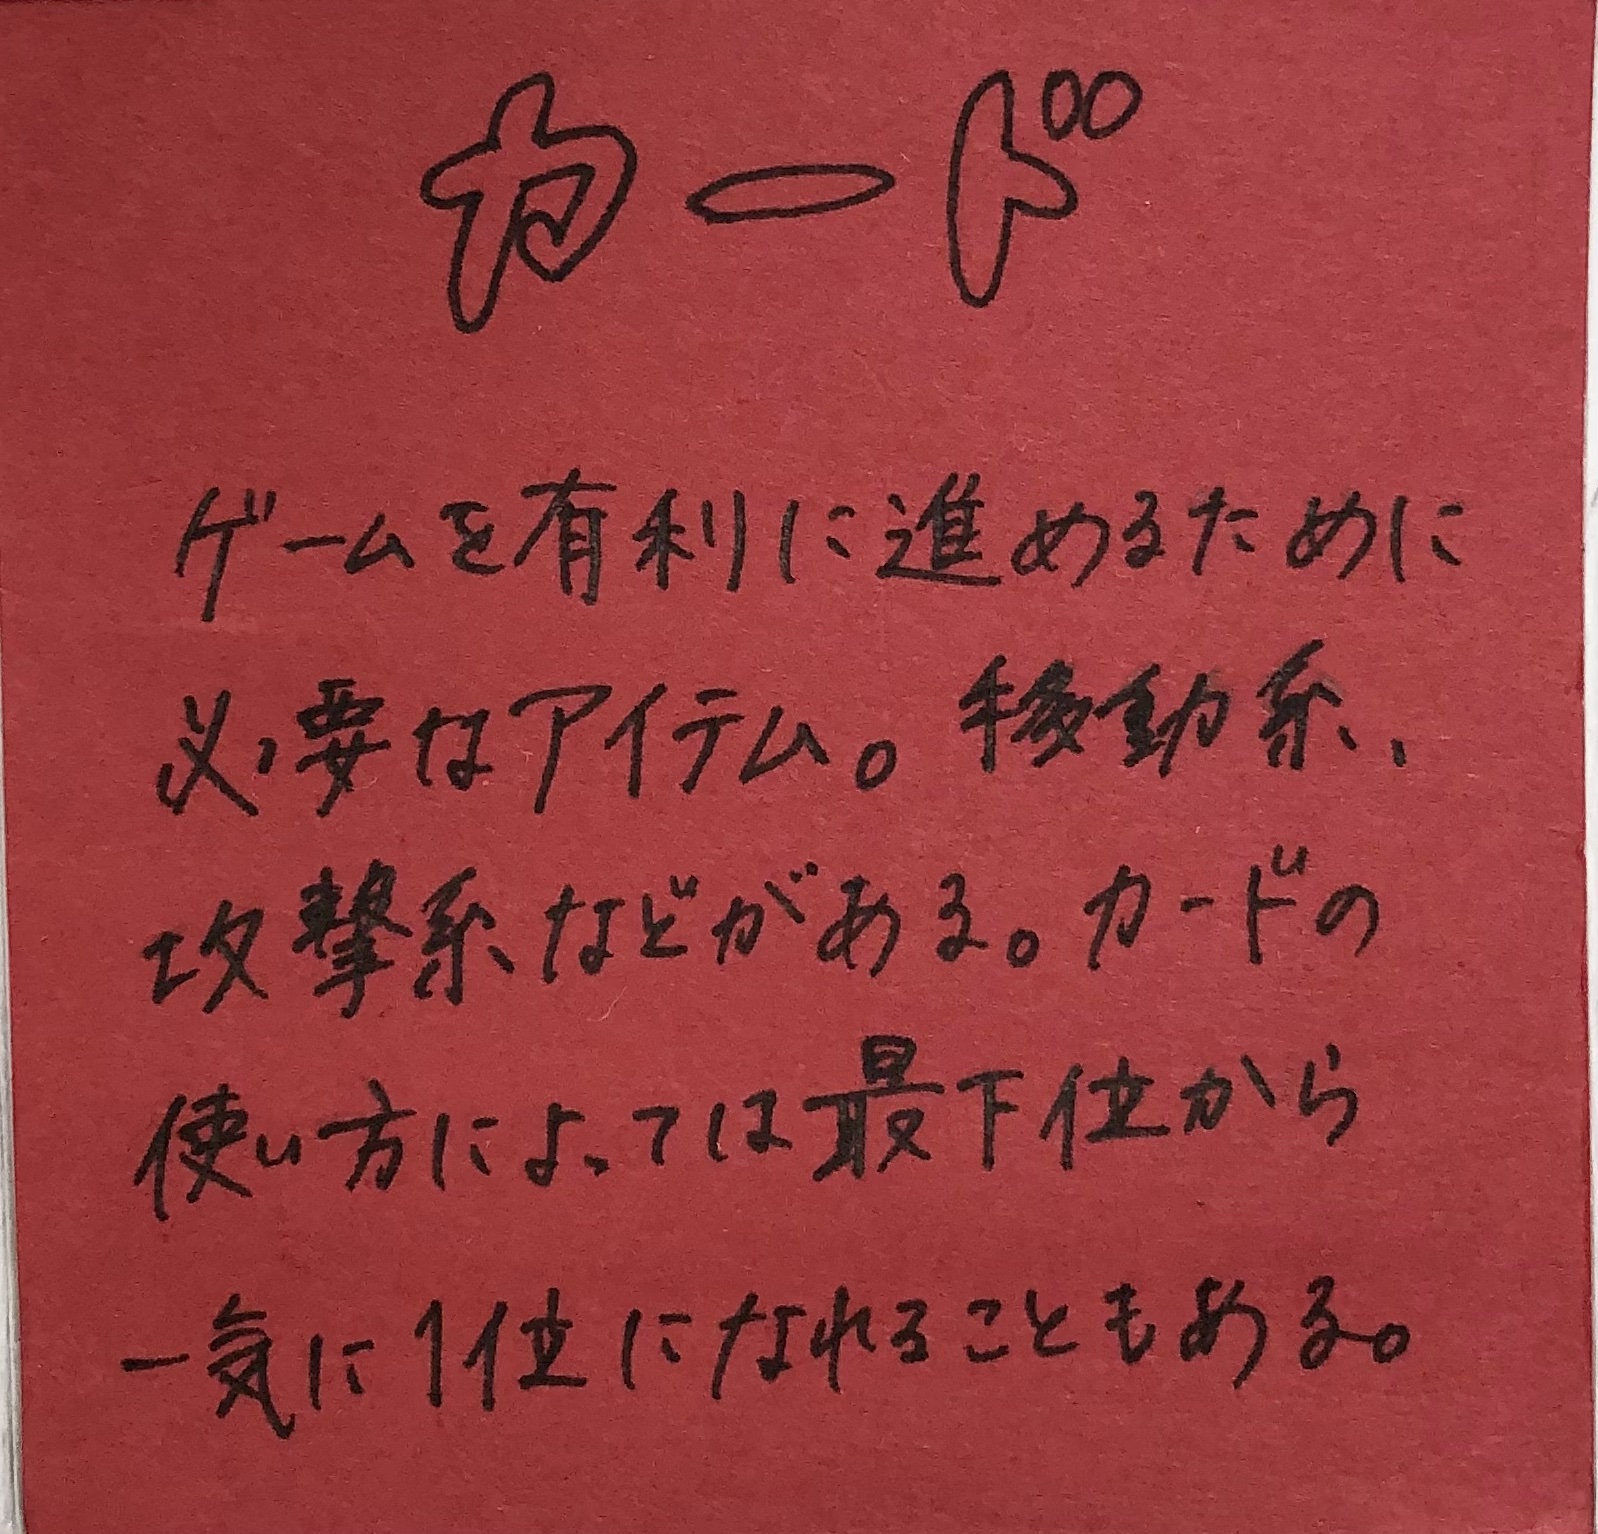 カード
ゲームを有利に進めるために
必要なアイテム。移動系、
攻撃系などがある。カードの
使い方によっては最下位から
一気に1位になれることもある。